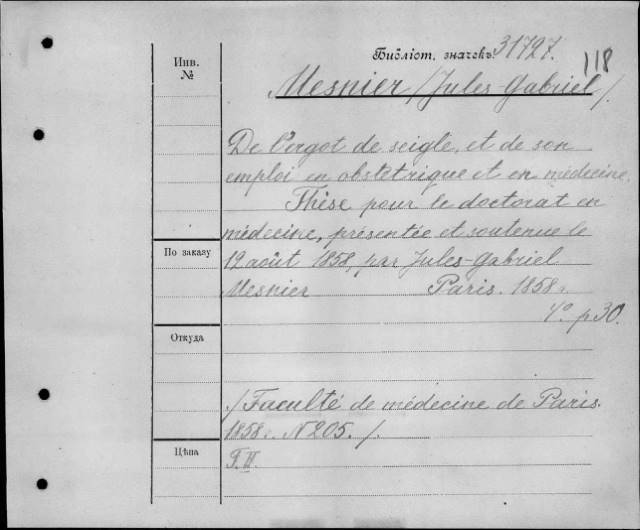 Инв.
№
Библіот. значекъ 31727.
118
Mesnier /Jules-Gabriel/.
De l'ergot de seigle, et de son
emploi en obstétrique et en médecine.
Thèse pour le doctorat en
médecine, présentée et soutenue le
19 août 1858, par Jules-Gabriel
Mesnier Paris. 1858.
4° p 30.
По заказу
Откуда
/Faculté de médecine de Paris.
1858. N 205. /.
Цѣна